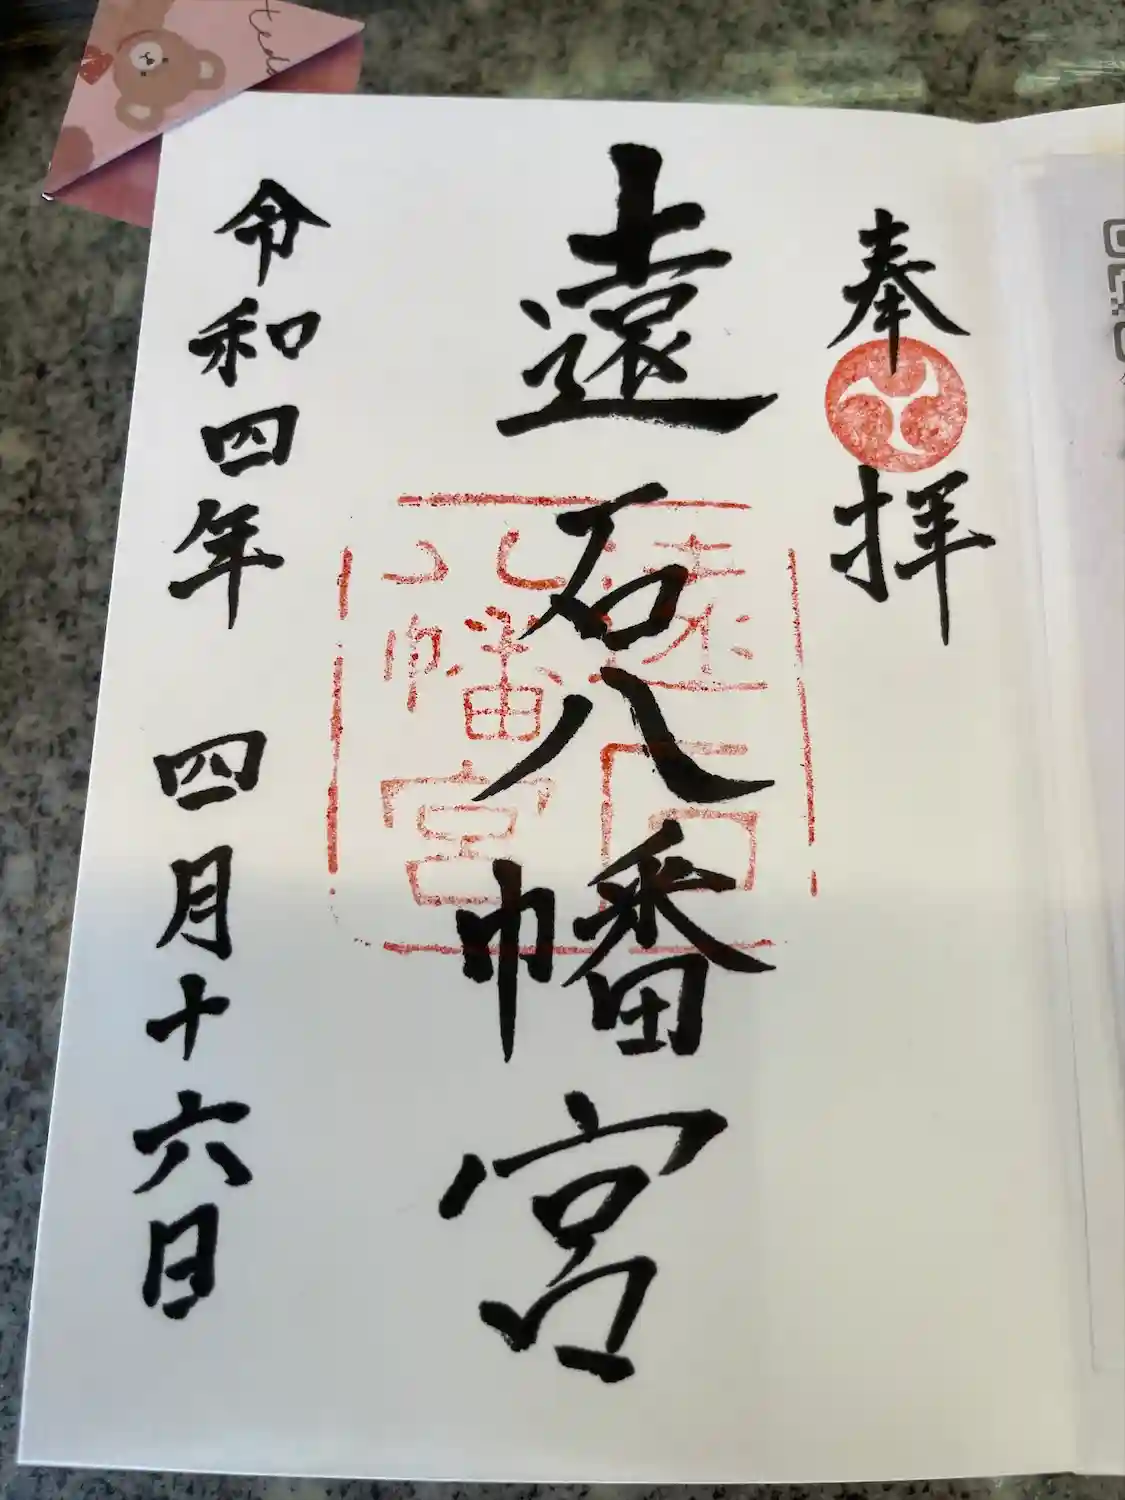 奉拝
遠石八幡宮
遠石八幡宮
令和四年 四月十六日